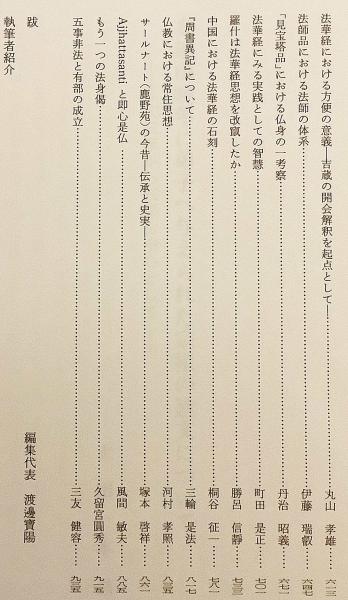 法華経における方便の意義―吉蔵の開会解釈を起点として―……丸山 孝雄……六一三
法師品における法師の体系……伊藤 瑞叡……六四七
「見宝塔品」における仏身の一考察……丹治 昭義……六七一
法華経にみる実践としての智慧……町田 是正……七〇一
羅什は法華経思想を改竄したか……勝呂 信静……七三三
中国における法華経の石刻……桐谷 征一……七八一
『周書異記』について……三輪 是法……八一七
仏教における常住思想……河村 孝照……八三五
サールナート(鹿野苑)の今昔―伝承と史実―……塚本 啓祥……八六一
Ajjhattasanti と即心是仏……風間 敏夫……八八五
もう一つの法身偈……久留宮圓秀……九一五
五事非法と有部の成立……三友 健容……九三五
跋……編集代表 渡邊寶陽
執筆者紹介